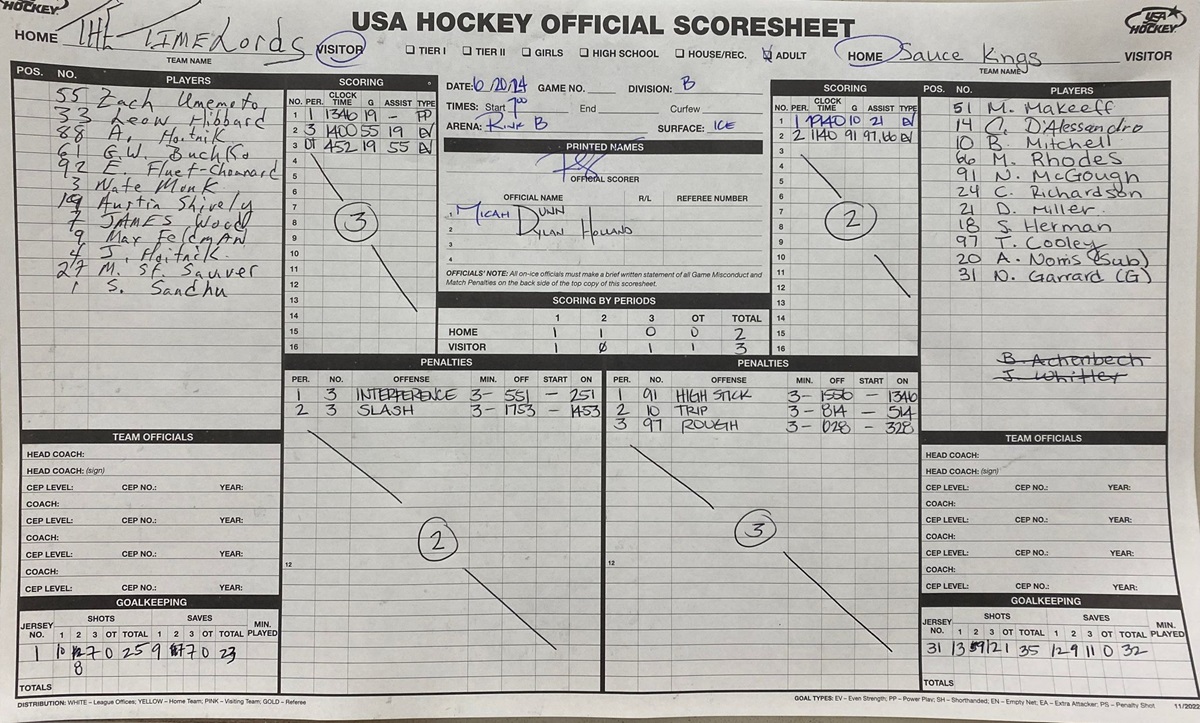 HOCKEY
USA HOCKEY OFFICIAL SCORESHEET
USA HOCKEY
HOME THE TIMELORDS VISITOR
TEAM NAME
☐ TIER I ☐ TIER II ☐ GIRLS ☐ HIGH SCHOOL ☐ HOUSE/REC. ☑ ADULT
HOME Sauce Kings VISITOR
TEAM NAME
POS. NO. PLAYERS
55 Zach Umemoto
33 Leow Hibbard
88 A. Hoitnik
61 G.W. Buchko
92 E. Fluet-Chouinard
3 Nate Monk
19 Austin Shively
7 JAMES Wood
9 Max Feldman
4 J. Hoitnik
27 M. St. Sauver
1 S. Sandhu
SCORING
NO. PER. CLOCK TIME G ASSIST TYPE
1 1 1346 19 - PP
2 3 1400 55 19 EV
3 OT 452 19 55 EV
4
5
6
7
8
9
10
11
12
13
14
15
16
3
DATE: 6/20/24 GAME NO. DIVISION: B
TIMES: Start 7:00 End Curfew
ARENA: Rink B SURFACE: ICE
PRINTED NAMES
OFFICIAL SCORER
OFFICIAL NAME R/L REFEREE NUMBER
1 MICAH DUNN
2 DYLAN HOLLAND
3
4
OFFICIALS' NOTE: All on-ice officials must make a brief written statement of all Game Misconduct and
Match Penalties on the back side of the top copy of this scoresheet.
SCORING BY PERIODS
1 2 3 OT TOTAL
HOME 1 1 0 0 2
VISITOR 1 0 1 1 3
SCORING
NO. PER. CLOCK TIME G ASSIST TYPE
1 1 1940 10 21 EV
2 2 1140 91 97,66 EV
3
4
5
6
7
8
9
10
11
12
13
14
15
16
2
POS. NO. PLAYERS
51 M. Makeeff
14 C. D'Alessandro
10 B. Mitchell
66 M. Rhodes
91 N. McGough
24 C. Richardson
21 D. Miller
18 S. Herman
97 T. Cooley
20 A. Norris (Sub)
31 N. Garrard (G)
B. Achenbech
J. Whitley
PENALTIES
PER. NO. OFFENSE MIN. OFF START ON
1 3 INTERFERENCE 3- 551 - 251
2 3 SLASH 3- 1753 - 1453
12
2
PENALTIES
PER. NO. OFFENSE MIN. OFF START ON
1 91 HIGH STICK 3- - 1346
2 10 TRIP 3- 814 - 514
3 97 ROUGH 3- 628 - 328
12
3
TEAM OFFICIALS
HEAD COACH:
HEAD COACH: (sign)
CEP LEVEL: CEP NO.: YEAR:
COACH:
CEP LEVEL: CEP NO.: YEAR:
COACH:
CEP LEVEL: CEP NO.: YEAR:
COACH:
CEP LEVEL: CEP NO.: YEAR:
GOALKEEPING
JERSEY NO. SHOTS SAVES MIN. PLAYED
1 2 3 OT TOTAL 1 2 3 OT TOTAL
1 10 8 7 0 25 9 7 7 0 23
TOTALS
TEAM OFFICIALS
HEAD COACH:
HEAD COACH: (sign)
CEP LEVEL: CEP NO.: YEAR:
COACH:
CEP LEVEL: CEP NO.: YEAR:
COACH:
CEP LEVEL: CEP NO.: YEAR:
COACH:
CEP LEVEL: CEP NO.: YEAR:
GOALKEEPING
JERSEY NO. SHOTS SAVES MIN. PLAYED
1 2 3 OT TOTAL 1 2 3 OT TOTAL
31 13 9 12 1 35 12 9 11 0 32
TOTALS
DISTRIBUTION: WHITE – League Offices; YELLOW – Home Team; PINK – Visiting Team; GOLD – Referee
GOAL TYPES: EV – Even Strength; PP – Power Play; SH – Shorthanded; EN – Empty Net; EA – Extra Attacker; PS – Penalty Shot 11/202